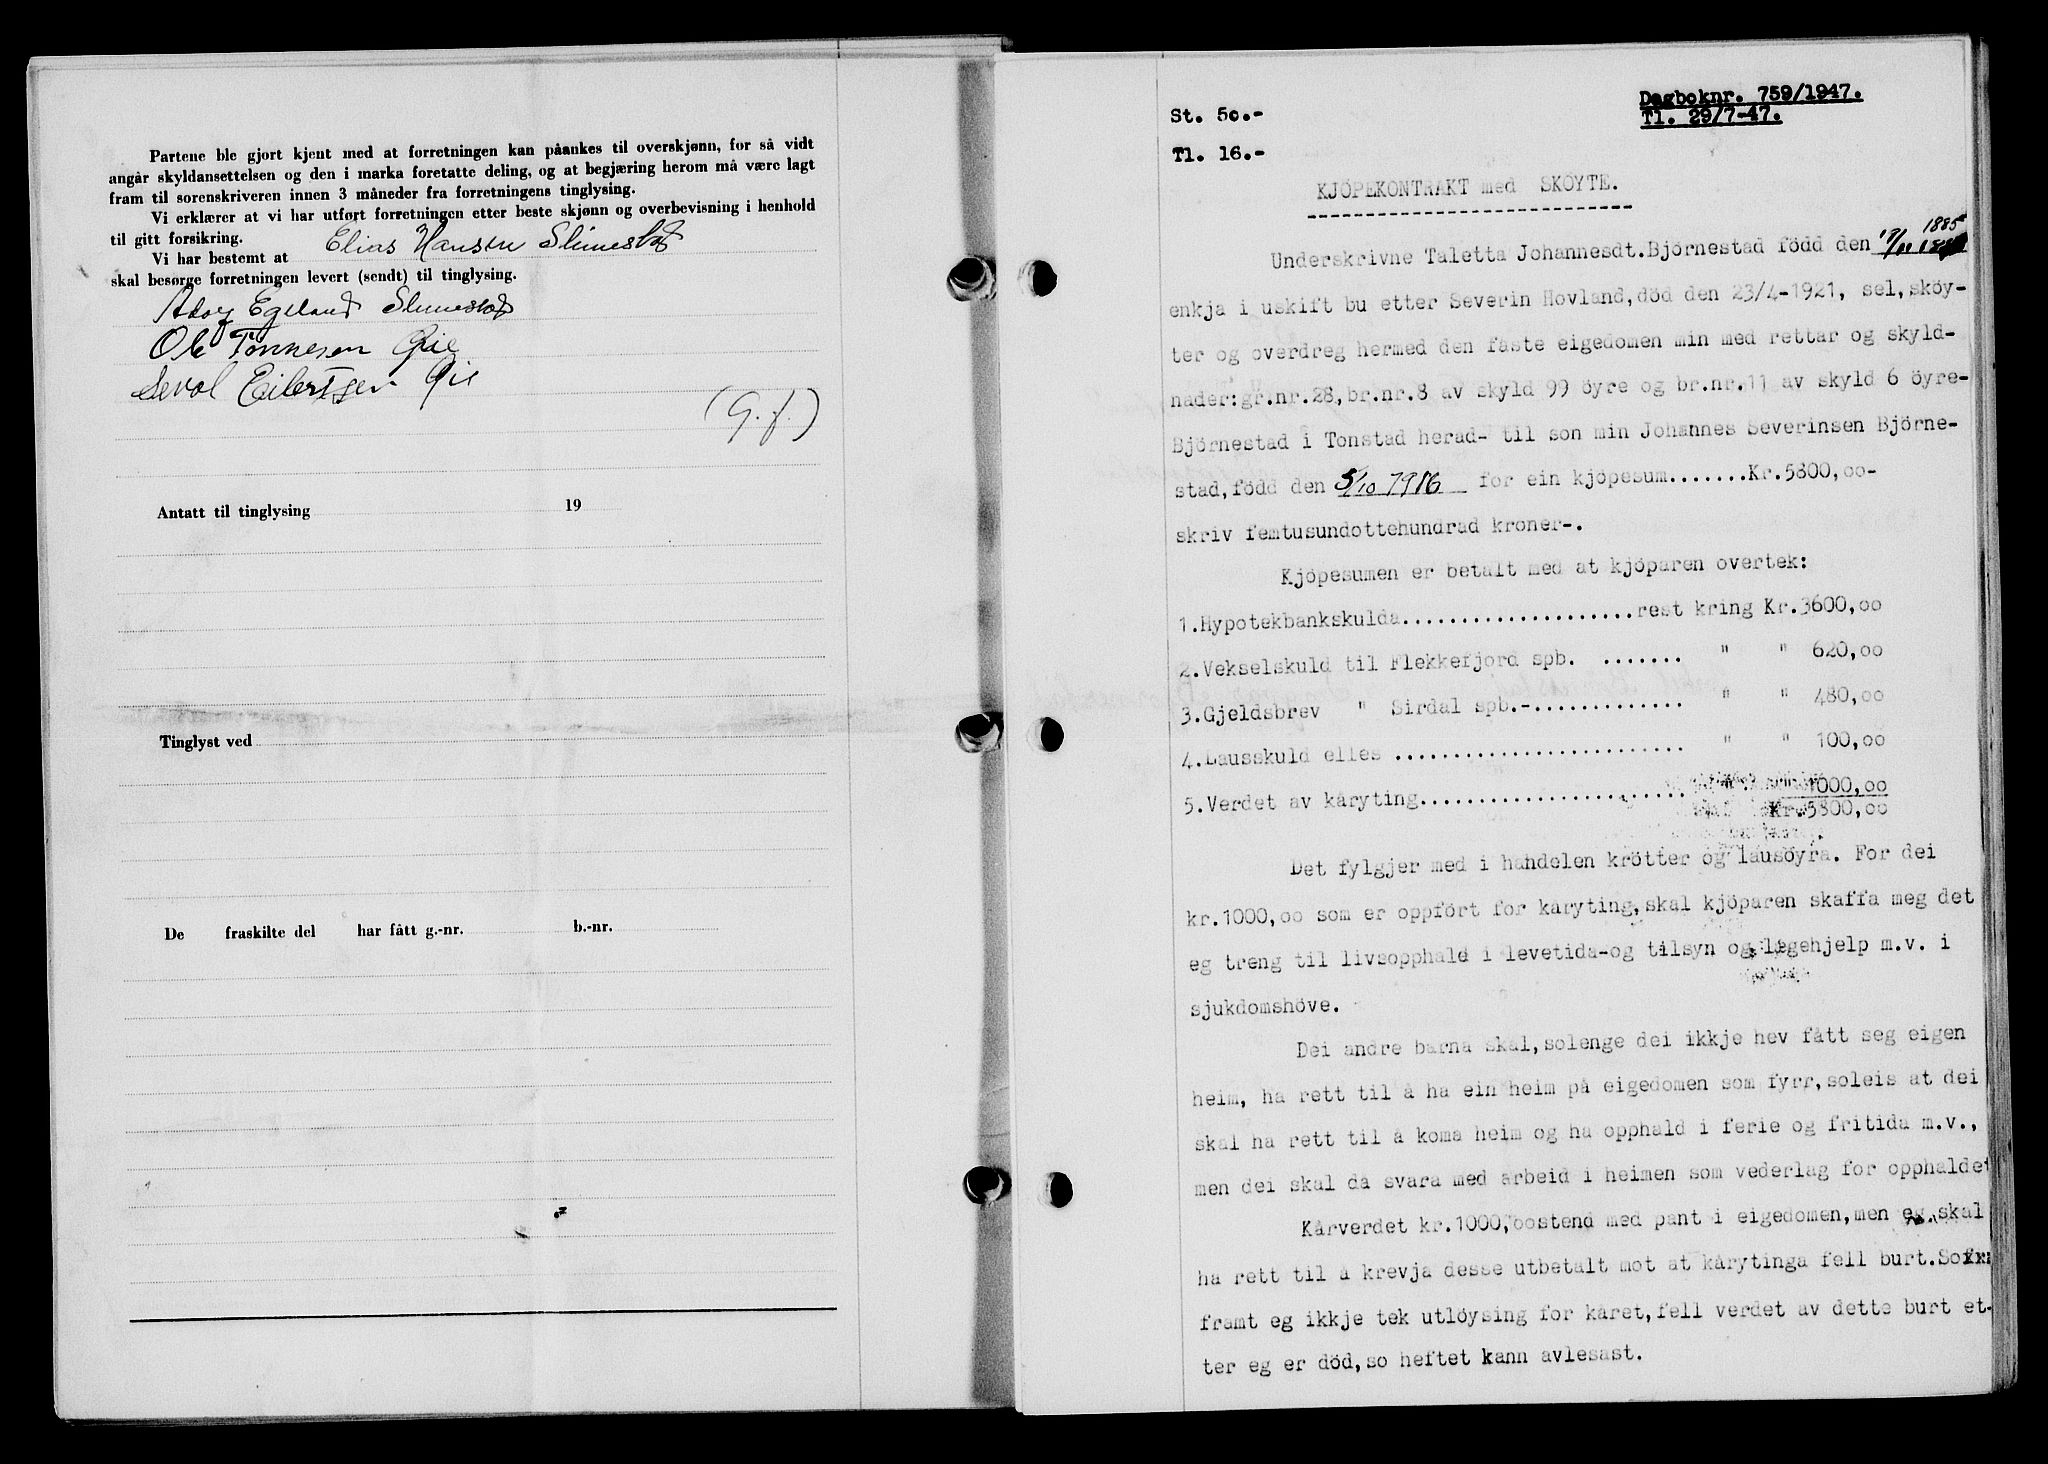 Partene ble gjort kjent med at forretningen kan påankes til overskjønn, for så vidt
angår skyldansettelsen og den i marka foretatte deling, og at begjæring herom må være lagt
fram til sorenskriveren innen 3 måneder fra forretningens tinglysing.
Vi erklærer at vi har utført forretningen etter beste skjønn og overbevisning i henhold
til gitt forsikring.
Vi har bestemt at Elias Hansen Slimestad
skal besørge forretningen levert (sendt) til tinglysing.
Egeland Slimestad
Ole Tønnesen Gie
Eilertsen Gie
(G.f.)
Antatt til tinglysing 19
Tinglyst ved
De fraskilte del har fått g.-nr. b.-nr.
Dagboknr. 759/1947.
Tl. 29/7-47.
St. 50.-
Tl. 16.-
KJÖPEKONTRAKT med SKÖYTE.
1885
Underskrivne Taletta Johannesdt.Björnestad född den
enkja i uskift bu etter Severin Hovland,död den 23/4-1921, sel,sköy-
ter og overdreg hermed den faste eigedomen min med rettar og skyld-
nader:gr.nr.28,br.nr.8 av skyld 99 öyre og br.nr.11 av skyld 6 öyre-
Björnestad i Tonstad herad- til son min Johannes Severinsen Björne-
stad,född den 5/10 1916 for ein kjöpesum.......Kr.5800,oo-
skriv femtusundottehundrad kroner-.
Kjöpesumen er betalt med at kjöparen overtek:
1.Hypotekbankskulda.....................rest kring Kr.3600,oo
2.Vekselskuld til Flekkefjord spb. ....... " " 620,oo
3.Gjeldsbrev " Sirdal spb.-............. " " 480,oo
4.Lausskuld elles ......................... " " 100,oo
5.Verdet av kåryting....................... " 1000,oo
Kr.5800,oo
Det fylgjer med i handelen krötter og lausöyra. For dei
kr.1000,oo som er oppfört for kåryting,skal kjöparen skaffa meg det
eg treng til livsopphald i levetida-og tilsyn og lægehjelp m.v. i
sjukdomshöve.
Dei andre barna skal,solenge dei ikkje hev fått seg eigen
heim, ha rett til å ha ein heim på eigedomen som fyrr,soleis at dei
skal ha rett til å koma heim og ha opphald i ferie og fritida m.v.,
men dei skal då svara med arbeid i heimen som vederlag for opphaldet
Kårverdet kr.1000,oostend med pant i eigedomen,men eg skal
ha rett til å krevja desse utbetalt mot at kårytinga fell burt.So
framt eg ikkje tek utlöysing for kåret,fell verdet av dette burt et-
ter eg er död,so heftet kann avlesast.